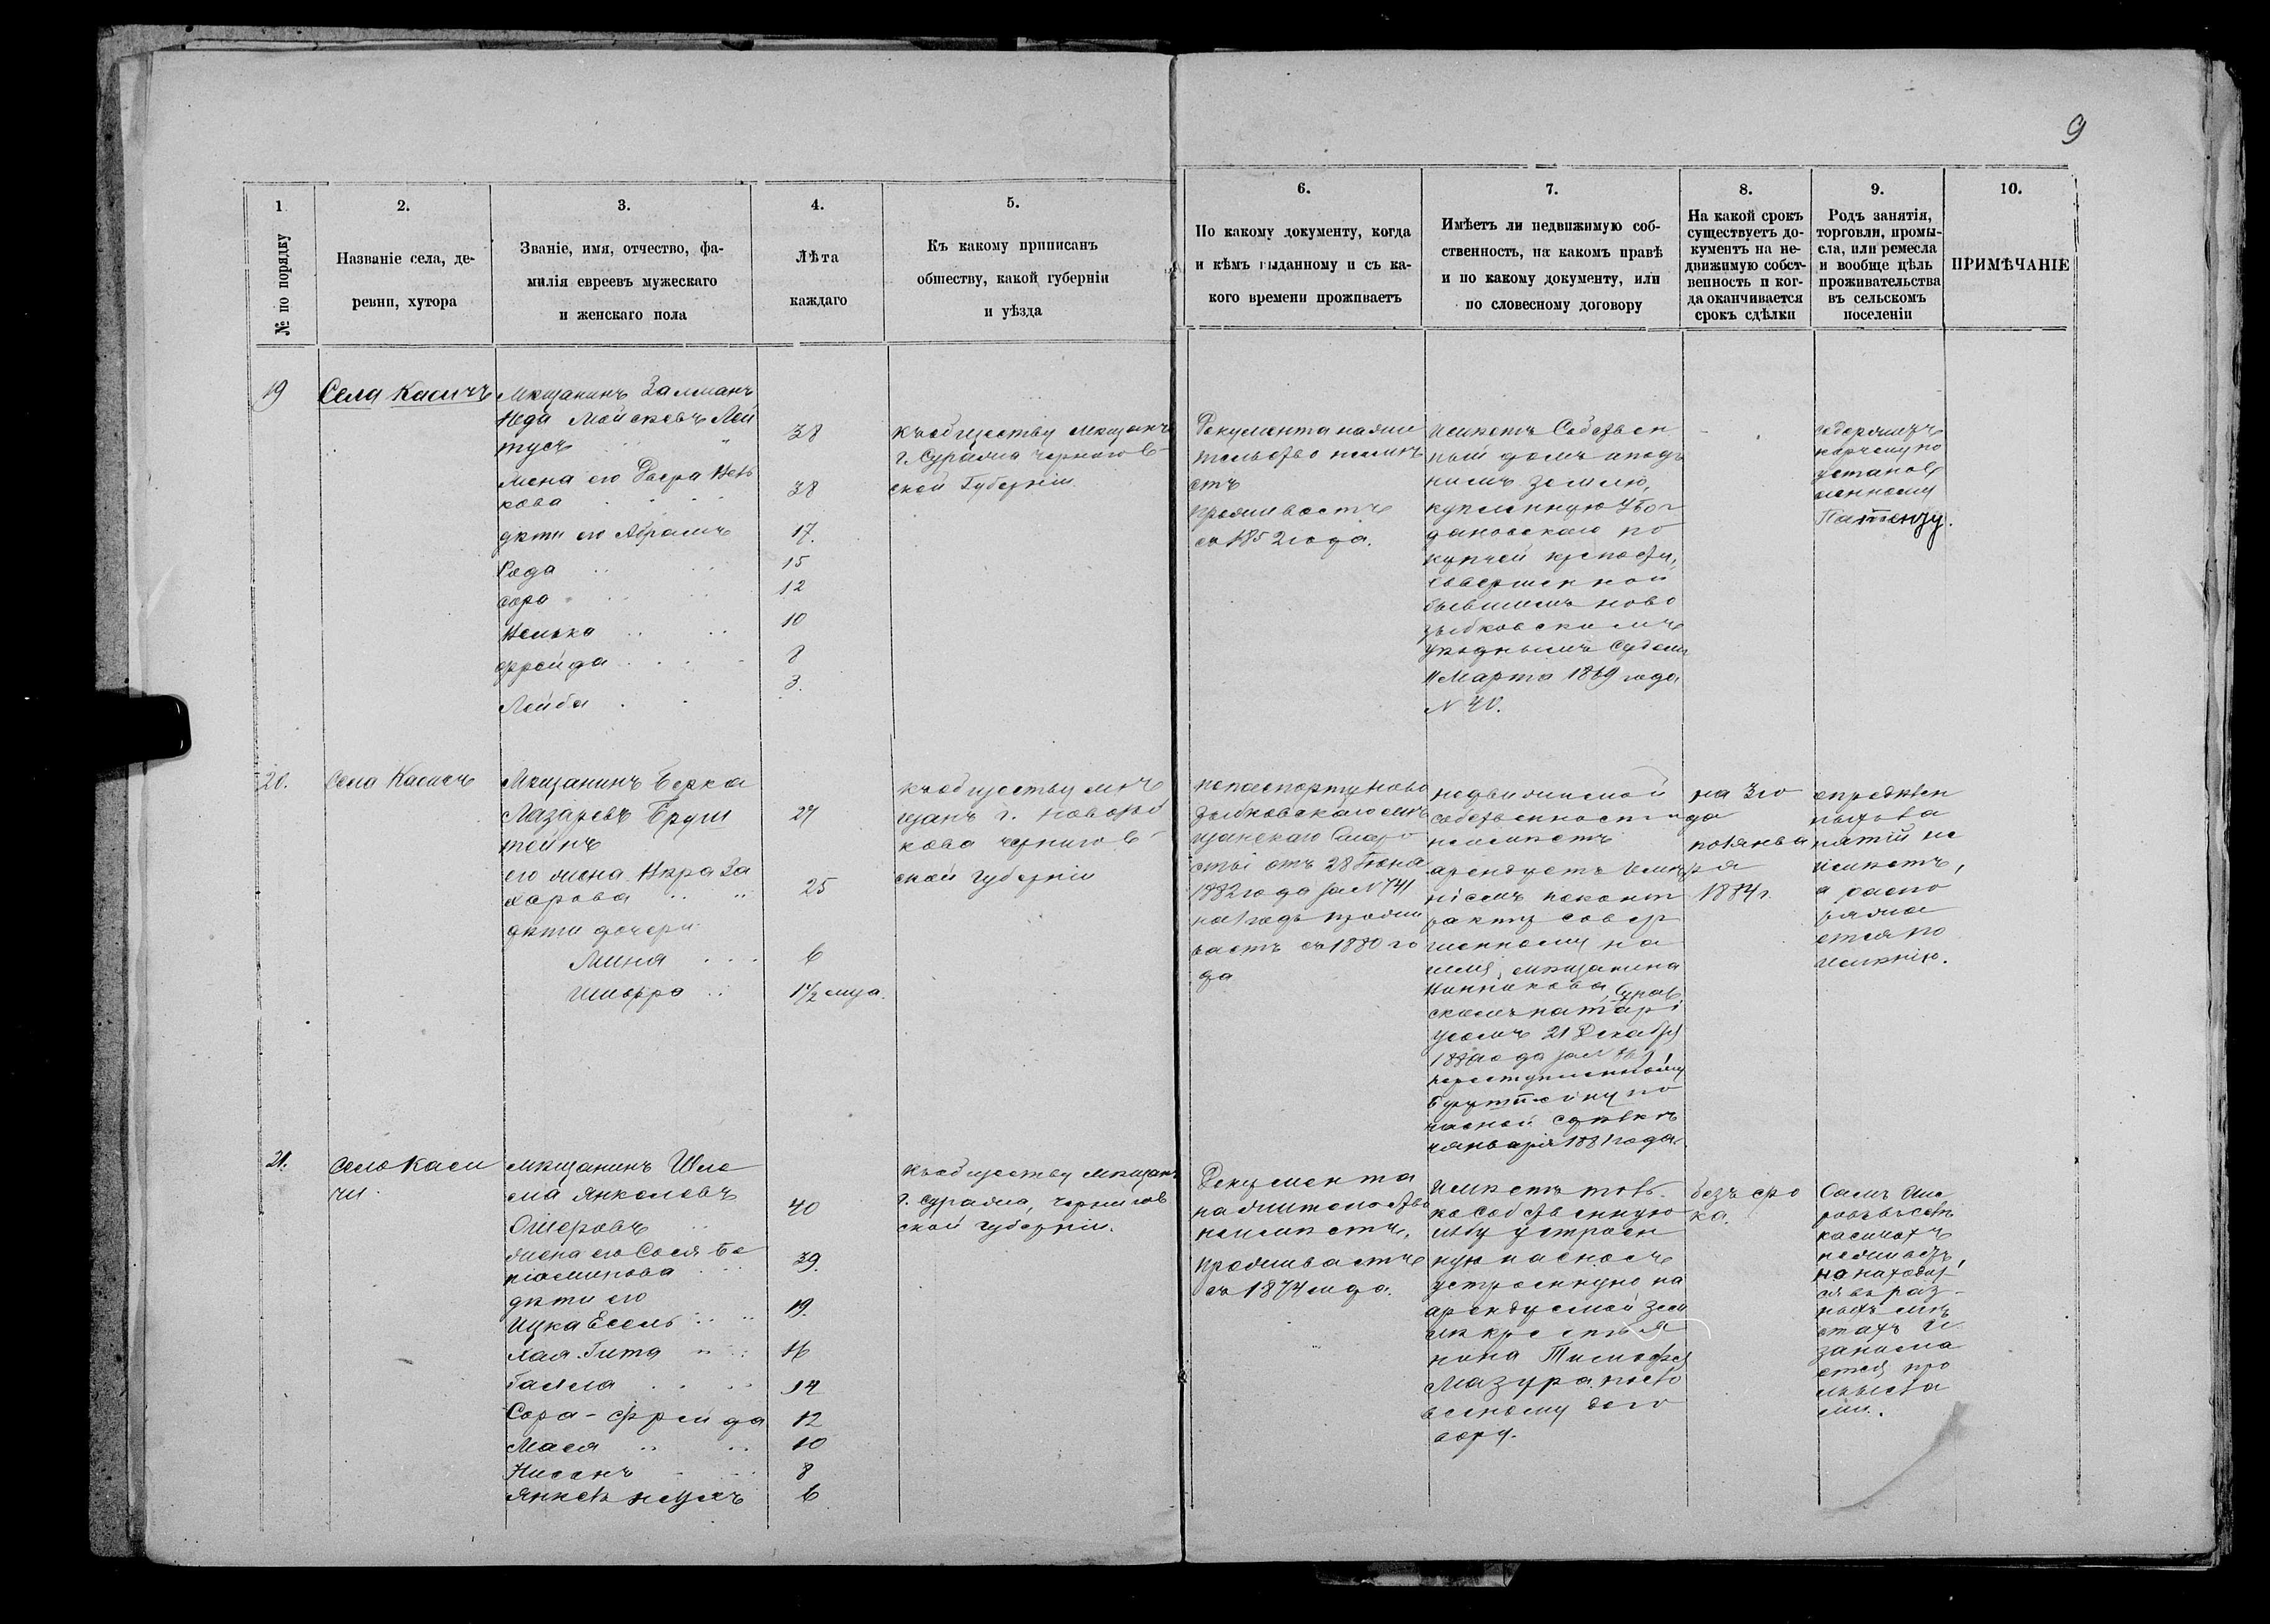 9
1
№ по порядку
2.
Названіе села, де-
ревни, хутора
3.
Званіе, имя, отчество, фа-
милія евреевъ мужескаго
и женскаго пола
4.
Лѣта
каждаго
5.
Къ какому приписанъ
обществу, какой губерніи
и уѣзда
6.
По какому документу, когда
и кѣмъ выданному и съ ка-
кого времени проживаетъ
7.
Имѣетъ ли недвижимую соб-
ственность, на какомъ правѣ
и по какому документу, или
по словесному договору
8.
На какой срокъ
существуетъ до-
кументъ на не-
движимую собст-
венность и ког-
да оканчивается
срокъ сдѣлки
9.
Родъ занятія,
торговли, промы-
сла, или ремесла
и вообще цѣль
проживательства
въ сельскомъ
поселеніи
10.
ПРИМѢЧАНІЕ
19
Села Касичъ
Мѣщанинъ Залманъ
Мойсеевъ Лей
38
жена его Двера
кова
38
дѣти его Абрамъ
17.
15
Сора
12
10
Фрейда
8
Лейба
3.
къ обществу мѣщанъ
г. Суража Чернигов-
ской Губерніи
Документа на жи
тельство не имѣ
етъ
проживаетъ
съ 1852 года.
имѣетъ Собствен
ный домъ и подъ
нимъ землю,
купленную у Бог
дановскаго по
купчей крепости,
совершенной
бывшимъ ново
зыбковскимъ
уѣзднымъ Судомъ
11 Марта 1869 года
N 40.
содержитъ
корчему по
установ
ленному
Патенту.
20.
Села Касичъ
Мѣщанинъ Берка
Лазаревъ Бруш
тейнъ
27
его жена За
харова
25
дѣти дочери
Мина
6
1½ мца.
къ обществу мѣ
щанъ г. Новозыб
кова Чернигов-
ской губерніи
по паспорту Ново
зыбковскаго мѣ
щанскаго Старо
сты отъ 28 Іюня
1882 года за N 741
на 1 годъ прожи
ваетъ съ 1880 го
да
недвижимой
собственности
не имѣетъ
арендуетъ имѣ
ніемъ по конт
ракту совер
шенному на
имя мѣщанина
Сураж
скомъ натарі
усомъ 21 Декабря
года за N
переступленному
Бруштейну по
частной сдѣлкѣ
Января 1881 года.
на 3 го
да
по Янва
ря
1884 г.
опредѣлен
ныхъ за
нятій не
имѣетъ,
а распо
ряжа
ется по
имѣнію.
21.
Село Каси
чи.
мѣщанинъ Шле
ма Янкелевъ
Ошеровъ
40
жена его Сося Бе
ніаминова
39.
дѣти его
Ицка Есель
19.
Хая Гита
16
14
Сора-Фрейда
12
Мася
10
Нисенъ
8
6
къ обществу мѣщанъ
г. Суража, Чернигов
ской губерніи.
Документа
на жительство
не имѣетъ,
проживаетъ
съ 1874 года.
имѣетъ толь
ко собственную
избу устроен
ную на сносъ
устроенную на
арендуемой зем
лѣ крестья
нина Тимофея
Мазура по сло
весному дого
вору.
безъ сро
ка.
Самъ Оше
ровъ въ селѣ
Касичахъ
не живетъ,
но находит-
ся въ раз-
ныхъ мѣ
стахъ и
занима
ется про
мысла
ми.